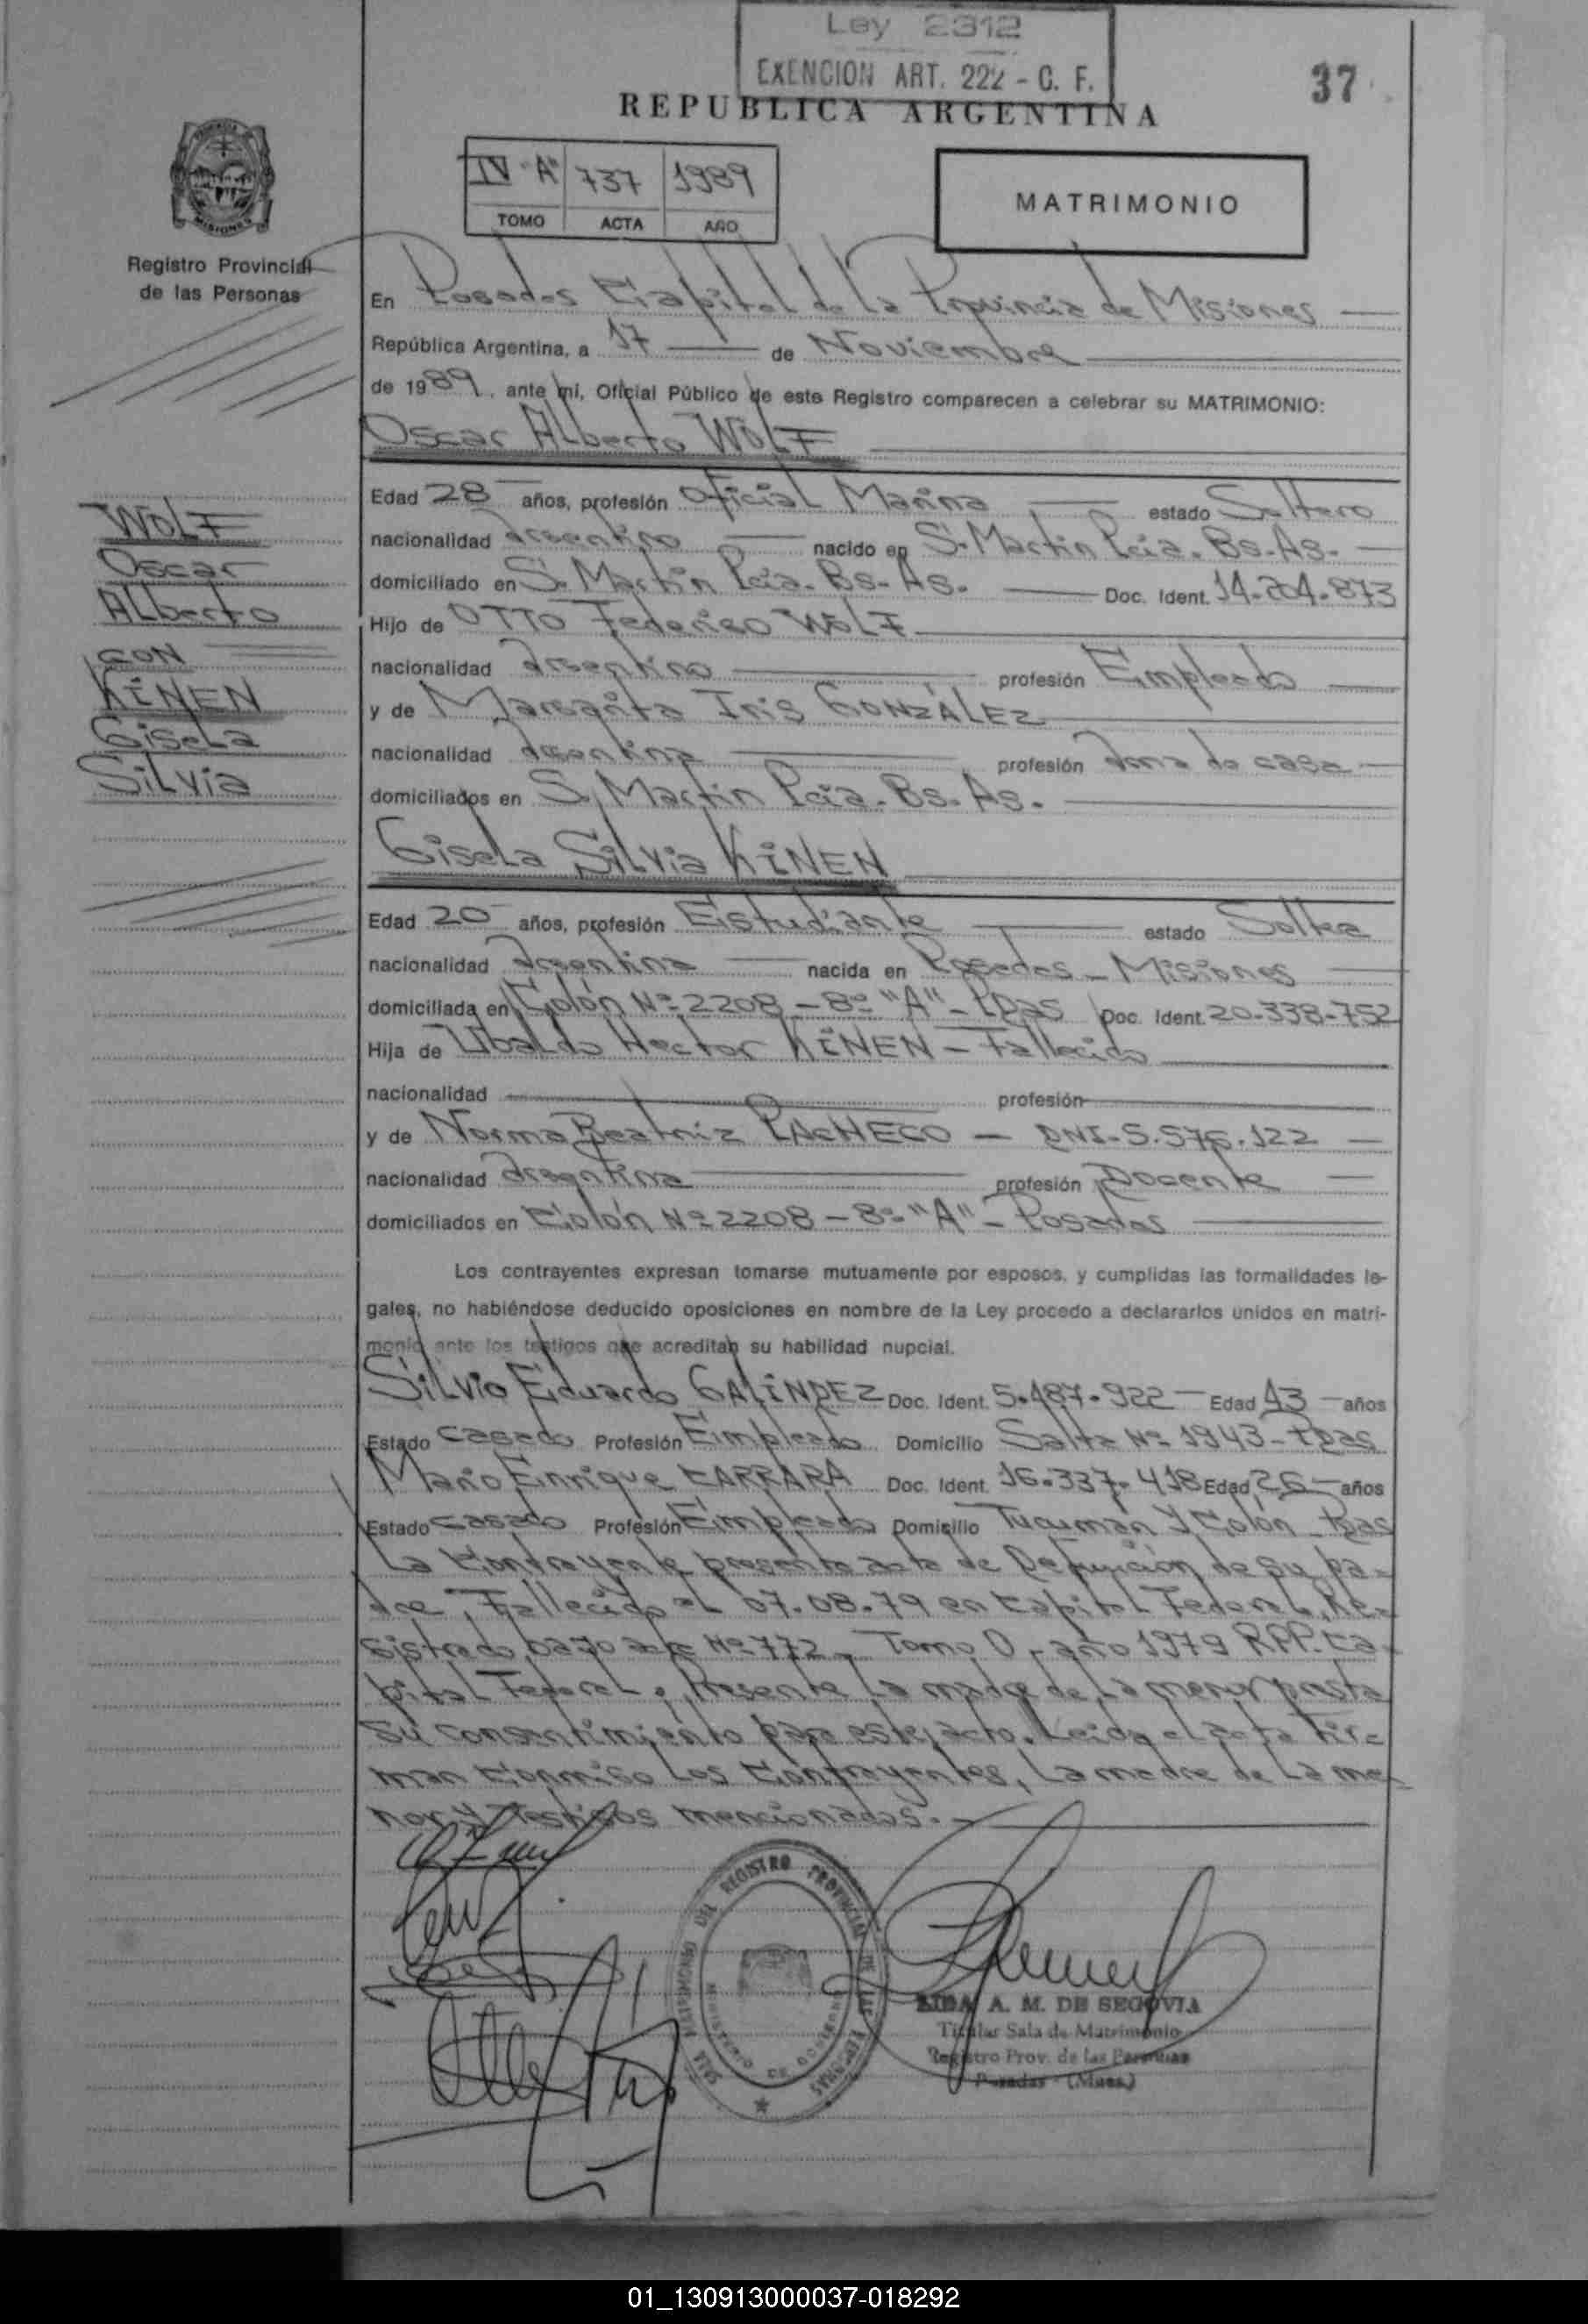 Ley 2312
EXENCION ART. 222 - C. F.
37
REPUBLICA ARGENTINA
IV Aº 737 1989
TOMO ACTA AÑO
MATRIMONIO
MISIONES
Registro Provincial
de las Personas
En Posadas Capital de la Provincia de Misiones
República Argentina, a 17 de Noviembre
de 1989, ante mí, Oficial Público de este Registro comparecen a celebrar su MATRIMONIO:
Oscar Alberto WOLF
Edad 28 años, profesión Oficial Marina estado Soltero
nacionalidad Argentino nacido en S. Martin Pcia. Bs. As.
domiciliado en S. Martin Pcia. Bs. As. Doc. Ident. 14.204.873
Hijo de OTTO Federico WOLF
nacionalidad Argentino profesión Empleado
y de Margarita Iris GONZÁLEZ
nacionalidad Argentina profesión Ama de casa
domiciliados en S. Martin Pcia. Bs. As.
WOLF
Oscar
Alberto
CON
KINEN
Gisela
Silvia
Gisela Silvia KINEN
Edad 20 años, profesión Estudiante estado Soltera
nacionalidad Argentina nacida en Posadas - Misiones
domiciliada en Colón Nº 2208 - 8º "A" - Pdas Doc. Ident. 20.338.752
Hija de Ubaldo Hector KINEN - Fallecido
nacionalidad profesión
y de Norma Beatriz PACHECO - DNI. 5.576.122
nacionalidad Argentina profesión Docente
domiciliados en Colón Nº 2208 - 8º "A" - Posadas
Los contrayentes expresan tomarse mutuamente por esposos, y cumplidas las formalidades le-
gales, no habiéndose deducido oposiciones en nombre de la Ley procedo a declararlos unidos en matri-
monio ante los testigos que acreditan su habilidad nupcial.
Silvio Eduardo GALINDEZ Doc. Ident. 5.187.922 Edad 43 años
Estado casado Profesión Empleado Domicilio Salta Nº 1943 - Pdas
Mario Enrique CARRARA Doc. Ident. 16.337.418 Edad 26 años
Estado casado Profesión Empleado Domicilio Tucumán y Colón - Pdas
La Contrayente presenta acta de Defunción de su pa-
dre, Fallecido el 07.08.79 en Capital Federal, Re-
gistrado bajo acta Nº 772 - Tomo O - año 1979 RPP. Ca-
pital Federal. Presente la madre de la menor presta
su consentimiento para este acto. Leída el acta Fir-
man Conmigo los Contrayentes, la madre de la me-
nor y Testigos mencionados.
SALA MATRIMONIOS DEL REGISTRO PROVINCIAL DE LAS PERSONAS
MINISTERIO DE GOBIERNO
A. M. DE SEGOVIA
Titular Sala de Matrimonio
Registro Prov. de las Personas
Posadas (Mnes.)
01_130913000037-018292